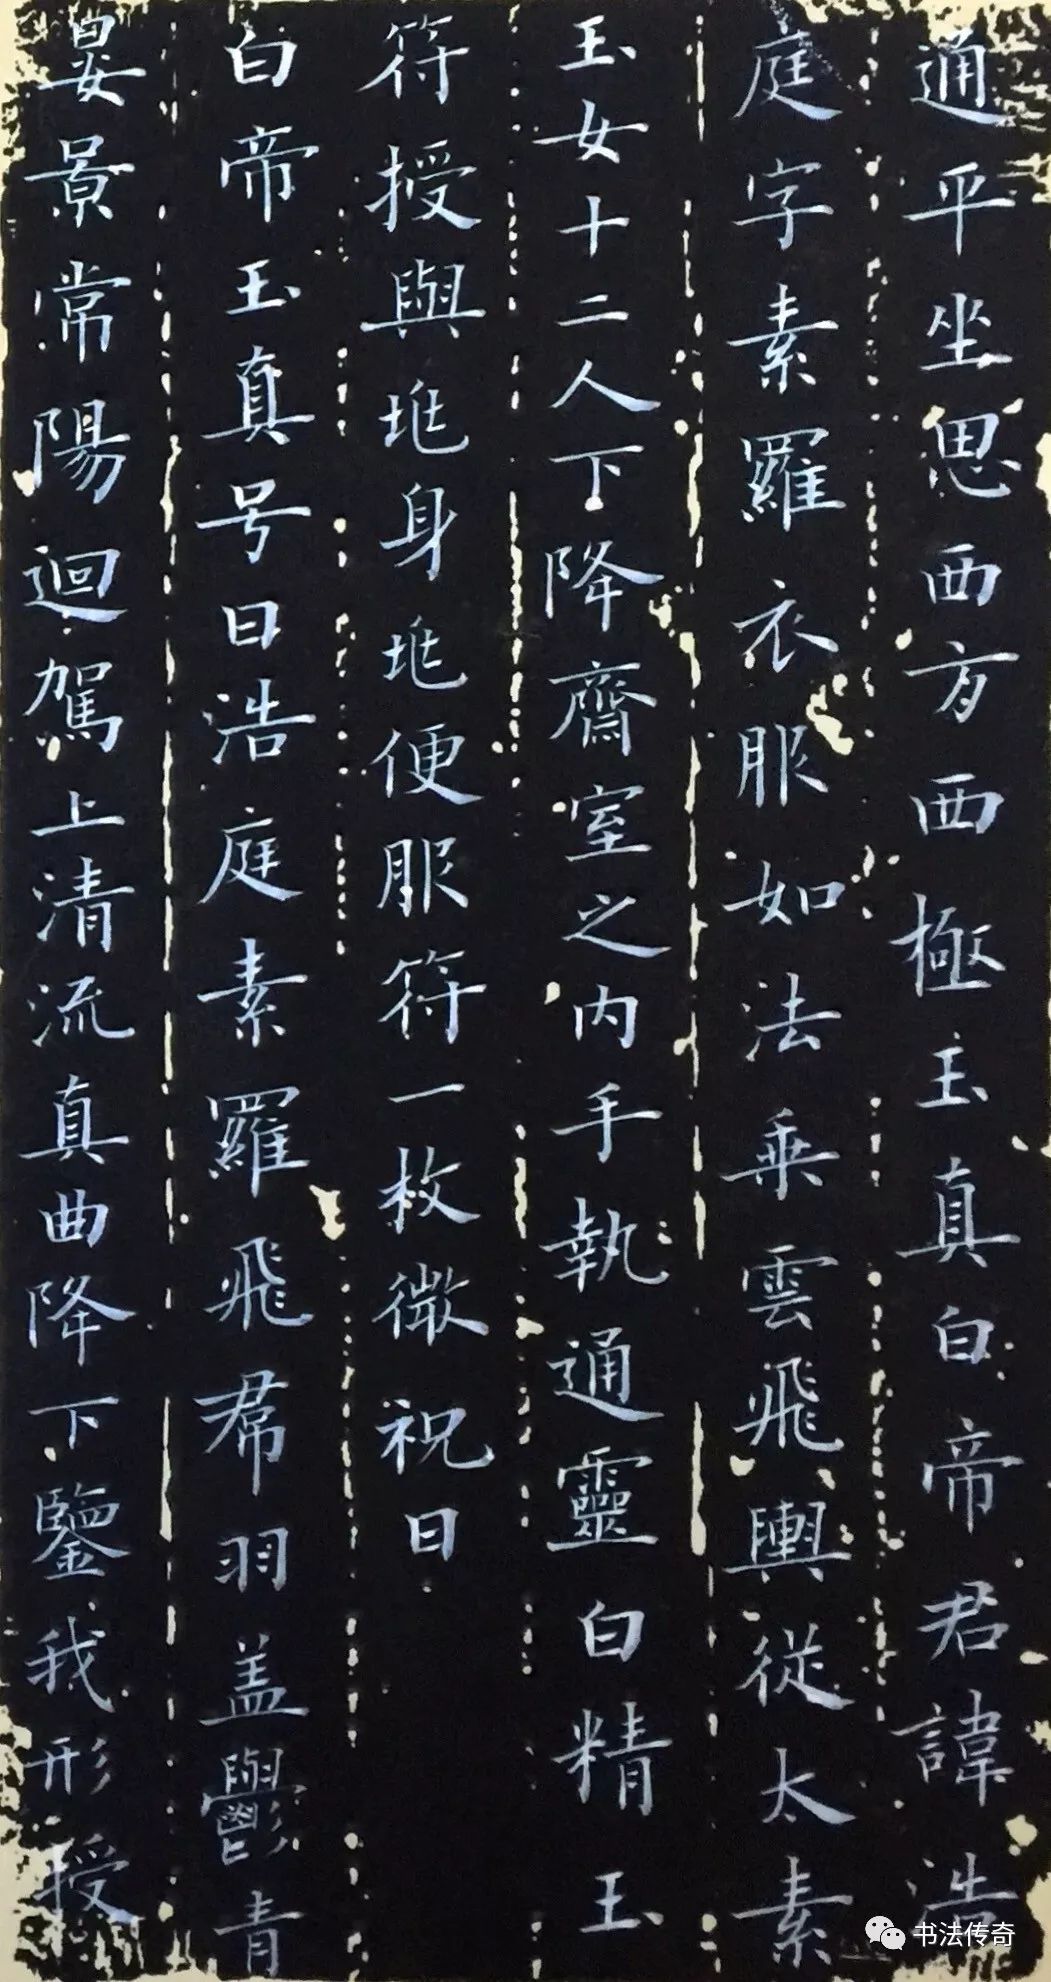 通平坐思西方西極玉真白帝君諱浩
庭字素羅衣服如法乗雲飛輿從太素
玉女十二人下降齋室之内手執通靈白精玉
符授與兆身兆便服符一枚微祝曰
白帝玉真号曰浩庭素羅飛帬羽盖鬱青
晏景常陽迴駕上清流真曲降下鑒我形授
书法传奇